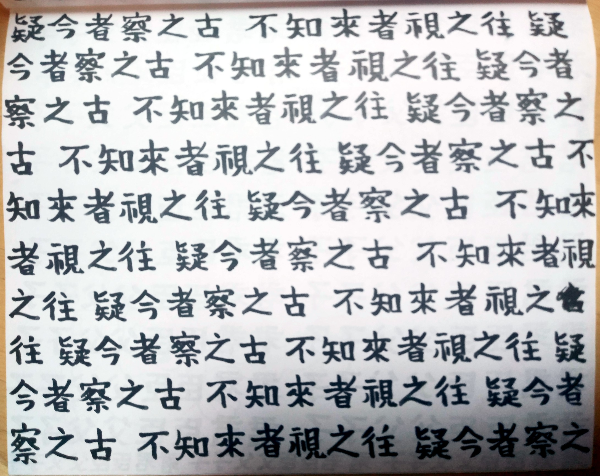 疑今者察之古 不知來者視之往 疑
今者察之古 不知來者視之往 疑今者
察之古 不知來者視之往 疑今者察之
古 不知來者視之往 疑今者察之古 不
知來者視之往 疑今者察之古 不知來
者視之往 疑今者察之古 不知來者視
之往 疑今者察之古 不知來者視之
往 疑今者察之古 不知來者視之往 疑
今者察之古 不知來者視之往 疑今者
察之古 不知來者視之往 疑今者察之